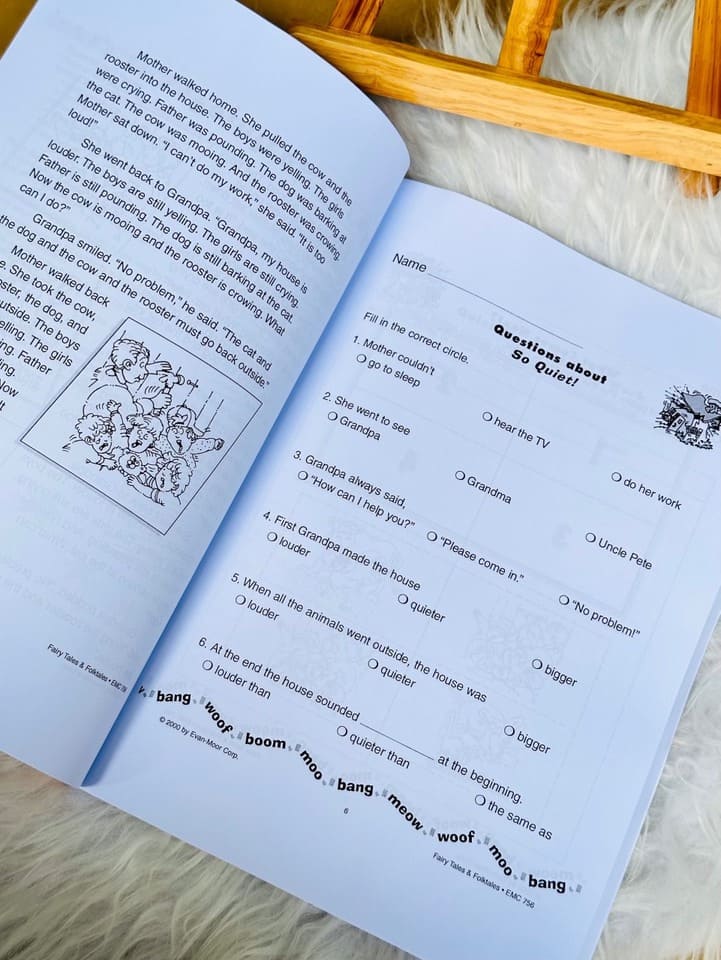 Mother walked home. She pulled the cow and the
rooster into the house. The boys were yelling. The girls
were crying. Father was pounding. The dog was barking at
the cat. The cow was mooing. And the rooster was crowing.
Mother sat down. "I can't do my work," she said. "It is too
loud!"
She went back to Grandpa. "Grandpa, my house is
louder. The boys are still yelling. The girls are still crying.
Father is still pounding. The dog is still barking at the cat.
Now the cow is mooing and the rooster is crowing. What
can I do?"
Grandpa smiled. "No problem," he said. "The cat and
the dog and the cow and the rooster must go back outside."
Mother walked back
She took the cow,
the dog, and
The boys
The girls
Father
Fairy Tales & Folktales • EMC
Name
Questions about
So Quiet!
Fill in the correct circle.
1. Mother couldn't
go to sleep
hear the TV
do her work
2. She went to see
Grandpa
Grandma
Uncle Pete
3. Grandpa always said,
"How can I help you?"
"Please come in."
"No problem!"
4. First Grandpa made the house
louder
quieter
bigger
5. When all the animals went outside, the house was
louder
quieter
bigger
6. At the end the house sounded __________ at the beginning.
louder than
quieter than
the same as
bang woof boom moo bang meow woof moo bang
© 2000 by Evan-Moor Corp.
6
Fairy Tales & Folktales • EMC 756